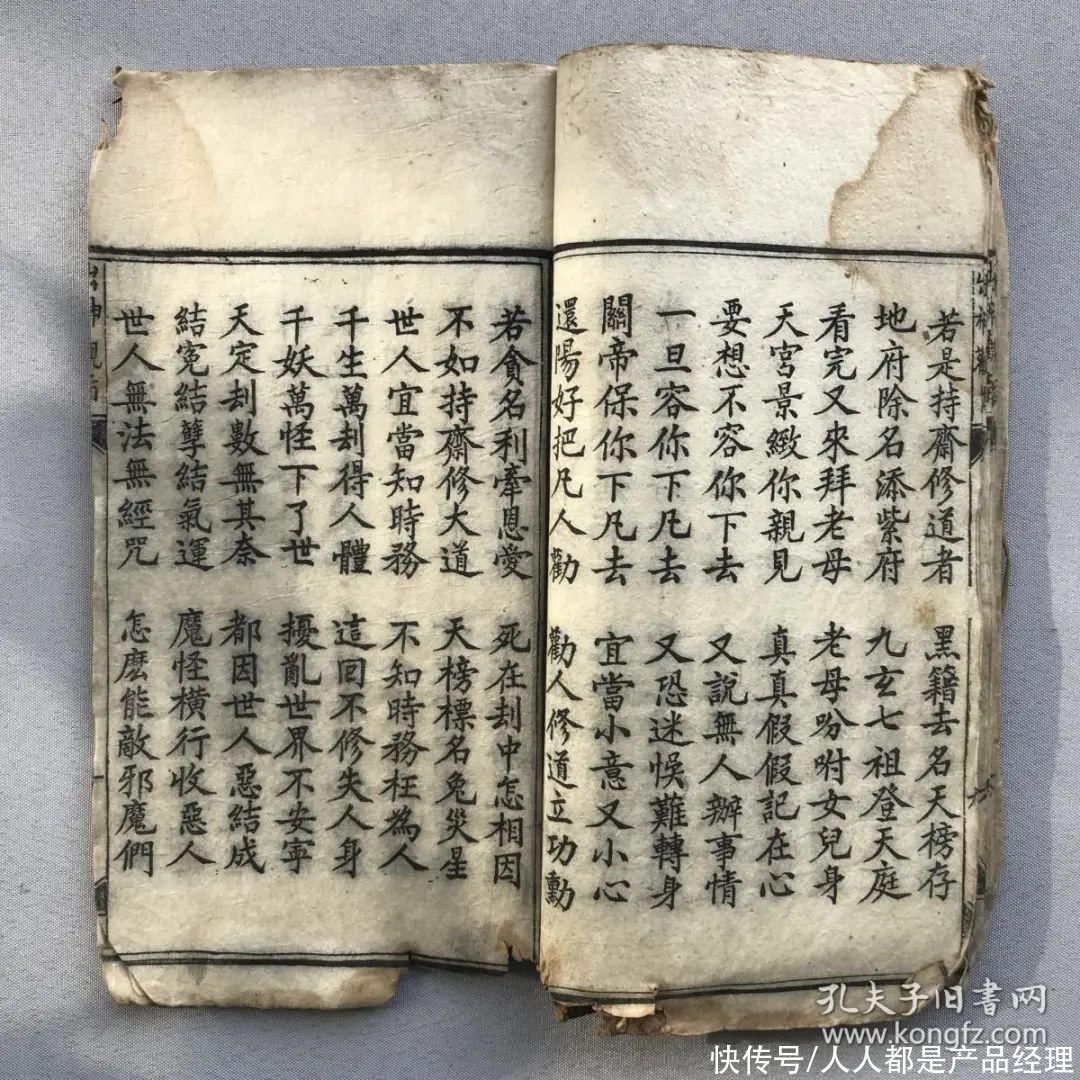 若是持齋修道者 黑籍去名天榜存
地府除名添紫府 九玄七祖登天庭
看完又來拜老母 老母吩咐女兒身
天宮景緻你親見 真真假假記在心
要想不容你下去 又說無人辦事情
一旦容你下凡去 又恐迷悞難轉身
關帝保你下凡去 宜當小意又小心
還陽好把凡人勸 勸人修道立功勳
若貪名利牽恩愛 死在刦中怎相因
不如持齋修大道 天榜標名免災星
世人宜當知時務 不知時務枉為人
千生萬刦得人體 這回不修失人身
千妖萬怪下了世 擾亂世界不安寧
天定刦數無其奈 都因世人惡結成
結寃結孽結氣運 魔怪橫行收惡人
世人無法無經咒 怎麽能敵邪魔們
孔夫子旧書网
www.kongfz.com
快传号/人人都是产品经理